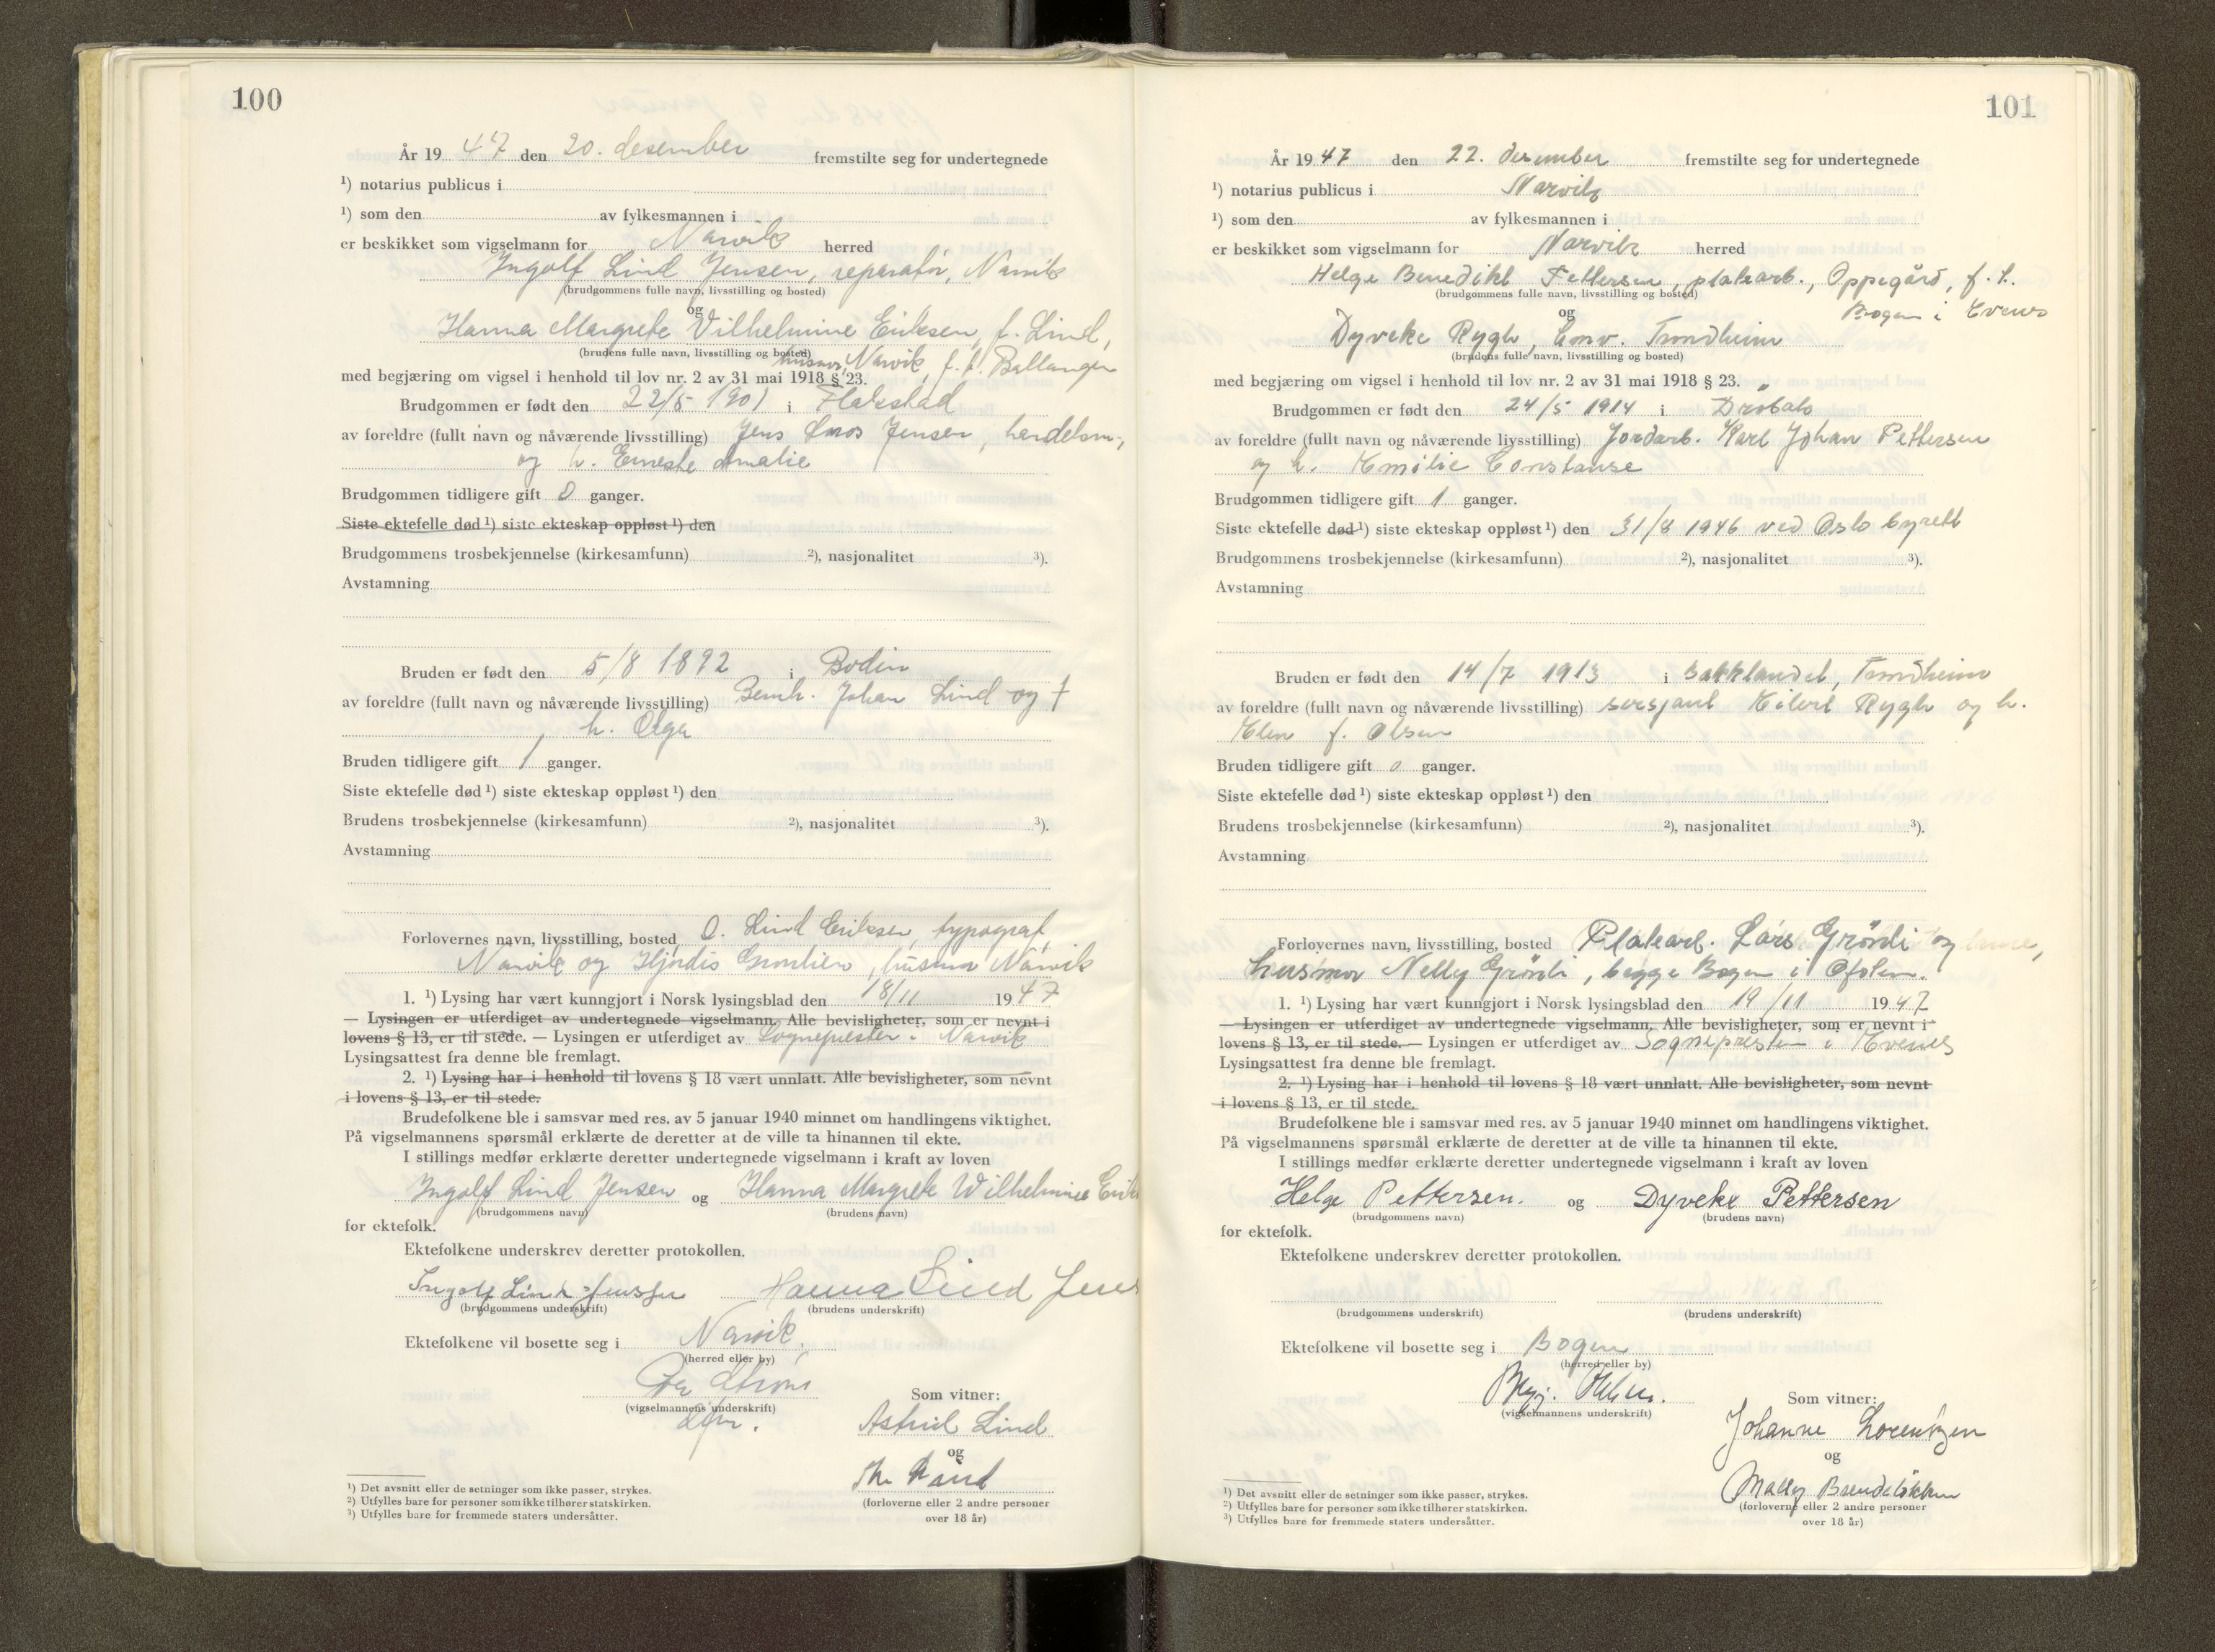 100
År 19 47 den 20. desember fremstilte seg for undertegnede
¹) notarius publicus i
¹) som den av fylkesmannen i
er beskikket som vigselmann for Narvik herred
Ingolf Lind Jensen, reparatør, Narvik
(brudgommens fulle navn, livsstilling og bosted)
og
Hanna Margrete Vilhelmine Eriksen, f. Lind,
(brudens fulle navn, livsstilling og bosted)
husmor, Narvik, f.h. Ballangen
med begjæring om vigsel i henhold til lov nr. 2 av 31 mai 1918 § 23.
Brudgommen er født den 22/5 1901 i Flakstad
av foreldre (fullt navn og nåværende livsstilling) Jens Jensen, handelsm.,
og h. Erneste Amalie
Brudgommen tidligere gift 0 ganger.
Siste ektefelle død ¹) siste ekteskap oppløst ¹) den
Brudgommens trosbekjennelse (kirkesamfunn) ²), nasjonalitet ³).
Avstamning
Bruden er født den 5/8 1892 i Bodin
av foreldre (fullt navn og nåværende livsstilling) Bernh. Johan Lind og
h. Olga
Bruden tidligere gift 1 ganger.
Siste ektefelle død ¹) siste ekteskap oppløst ¹) den
Brudens trosbekjennelse (kirkesamfunn) ²), nasjonalitet ³).
Avstamning
Forlovernes navn, livsstilling, bosted O. Lind Eriksen, typograf,
Narvik og Hjørdis husmor Narvik
1. ¹) Lysing har vært kunngjort i Norsk lysingsblad den 18/11 19 47
— Lysingen er utferdiget av undertegnede vigselmann. Alle bevisligheter, som er nevnt i
lovens § 13, er til stede. — Lysingen er utferdiget av Sognepresten i Narvik
Lysingsattest fra denne ble fremlagt.
2. ¹) Lysing har i henhold til lovens § 18 vært unnlatt. Alle bevisligheter, som nevnt
i lovens § 13, er til stede.
Brudefolkene ble i samsvar med res. av 5 januar 1940 minnet om handlingens viktighet.
På vigselmannens spørsmål erklærte de deretter at de ville ta hinannen til ekte.
I stillings medfør erklærte deretter undertegnede vigselmann i kraft av loven
Ingolf Lind Jensen og Hanna Margrete Wilhelmine
(brudgommens navn) (brudens navn)
for ektefolk.
Ektefolkene underskrev deretter protokollen.
Ingolf Lind Jensen Hanna Lind
(brudgommens underskrift) (brudens underskrift)
Ektefolkene vil bosette seg i Narvik.
(herred eller by)
(vigselmannens underskrift)
Som vitner:
Astrid Lind
og
(forloverne eller 2 andre personer
over 18 år)
¹) Det avsnitt eller de setninger som ikke passer, strykes.
²) Utfylles bare for personer som ikke tilhører statskirken.
³) Utfylles bare for fremmede staters undersåtter.
101
År 19 47 den 22. desember fremstilte seg for undertegnede
¹) notarius publicus i Narvik
¹) som den av fylkesmannen i
er beskikket som vigselmann for Narvik herred
Helge Benedikt Pettersen, platearb., Oppegård, f. t.
(brudgommens fulle navn, livsstilling og bosted)
Bogen i Evenes
og
Dyveke Rygh, Trondheim
(brudens fulle navn, livsstilling og bosted)
med begjæring om vigsel i henhold til lov nr. 2 av 31 mai 1918 § 23.
Brudgommen er født den 24/5 1914 i Drøbak
av foreldre (fullt navn og nåværende livsstilling) Jordarb. Karl Johan Pettersen
og h. Emilie Constanse
Brudgommen tidligere gift 1 ganger.
Siste ektefelle død ¹) siste ekteskap oppløst ¹) den 31/8 1946 ved Oslo byrett
Brudgommens trosbekjennelse (kirkesamfunn) ²), nasjonalitet ³).
Avstamning
Bruden er født den 14/7 1913 i Bakklandet, Trondheim
av foreldre (fullt navn og nåværende livsstilling) sersjant Eilert Rygh og h.
Elen f. Olsen
Bruden tidligere gift 0 ganger.
Siste ektefelle død ¹) siste ekteskap oppløst ¹) den
Brudens trosbekjennelse (kirkesamfunn) ²), nasjonalitet ³).
Avstamning
Forlovernes navn, livsstilling, bosted Platearb. Lars Grønli og
husmor Nelly Grønli, begge Bogen i Ofoten.
1. ¹) Lysing har vært kunngjort i Norsk lysingsblad den 19/11 19 47
— Lysingen er utferdiget av undertegnede vigselmann. Alle bevisligheter, som er nevnt i
lovens § 13, er til stede. — Lysingen er utferdiget av Sognepresten i Evenes
Lysingsattest fra denne ble fremlagt.
2. ¹) Lysing har i henhold til lovens § 18 vært unnlatt. Alle bevisligheter, som nevnt
i lovens § 13, er til stede.
Brudefolkene ble i samsvar med res. av 5 januar 1940 minnet om handlingens viktighet.
På vigselmannens spørsmål erklærte de deretter at de ville ta hinannen til ekte.
I stillings medfør erklærte deretter undertegnede vigselmann i kraft av loven
Helge Pettersen. og Dyveke Pettersen
(brudgommens navn) (brudens navn)
for ektefolk.
Ektefolkene underskrev deretter protokollen.
(brudgommens underskrift) (brudens underskrift)
Ektefolkene vil bosette seg i Bogen
(herred eller by)
(vigselmannens underskrift)
Som vitner:
Johanne Lorentzen
og
(forloverne eller 2 andre personer
over 18 år)
¹) Det avsnitt eller de setninger som ikke passer, strykes.
²) Utfylles bare for personer som ikke tilhører statskirken.
³) Utfylles bare for fremmede staters undersåtter.